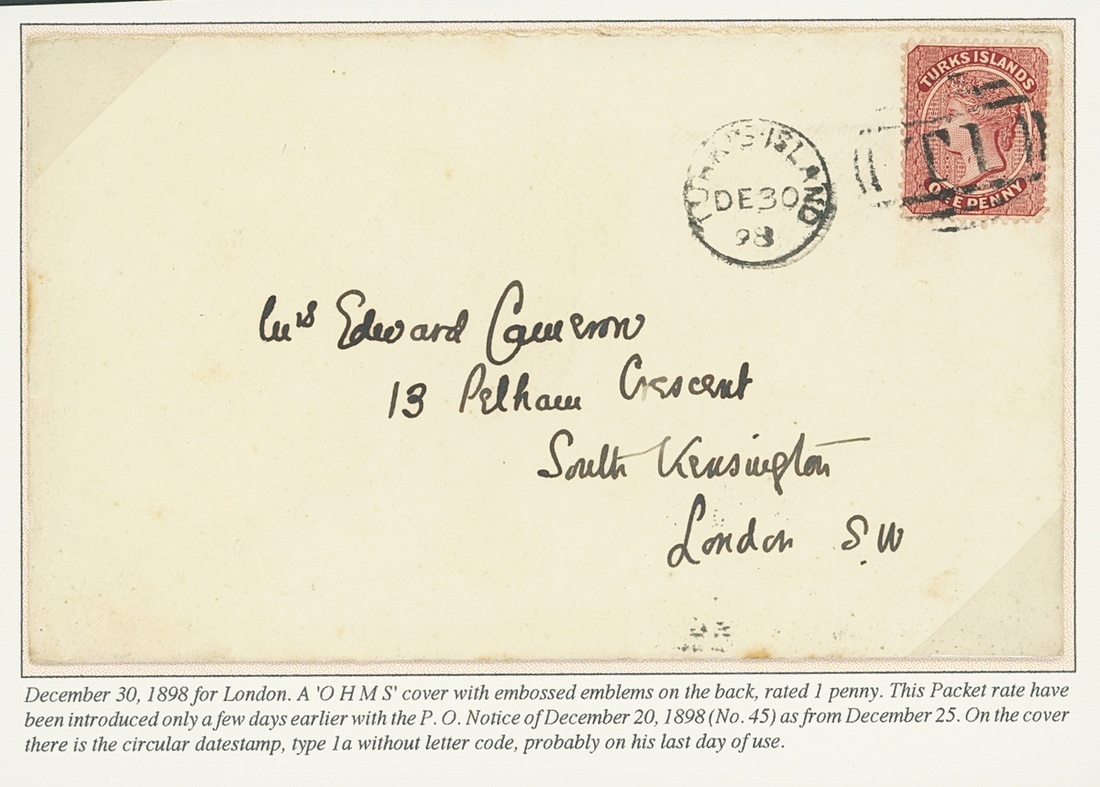 TURKS ISLANDS
T I
ONE PENNY
TURKS ISLAND
DE 30
98
Mrs Edward Cameron
13 Pelham Crescent
South Kensington
London S.W
December 30, 1898 for London. A 'O H M S' cover with embossed emblems on the back, rated 1 penny. This Packet rate have
been introduced only a few days earlier with the P. O. Notice of December 20, 1898 (No. 45) as from December 25. On the cover
there is the circular datestamp, type 1a without letter code, probably on his last day of use.